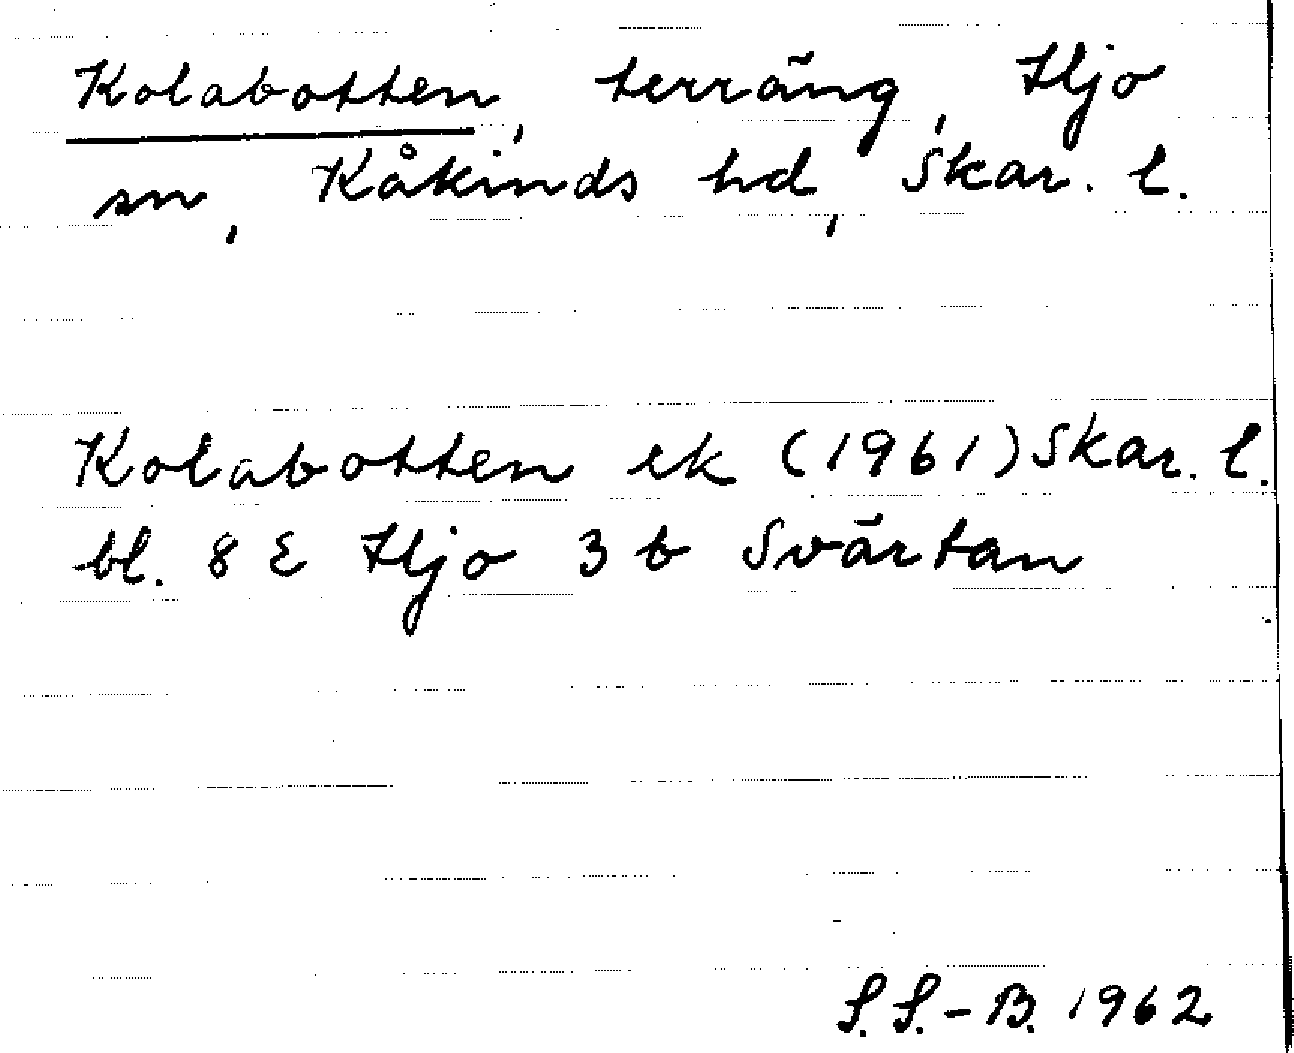 Kolabotten, terräng, Hjo
sn, Kåkinds hd, Skar. l.
Kolabotten ek (1961) Skar. l.
bl. 8 E Hjo 3 b Svärtan
S. S.-B. 1962